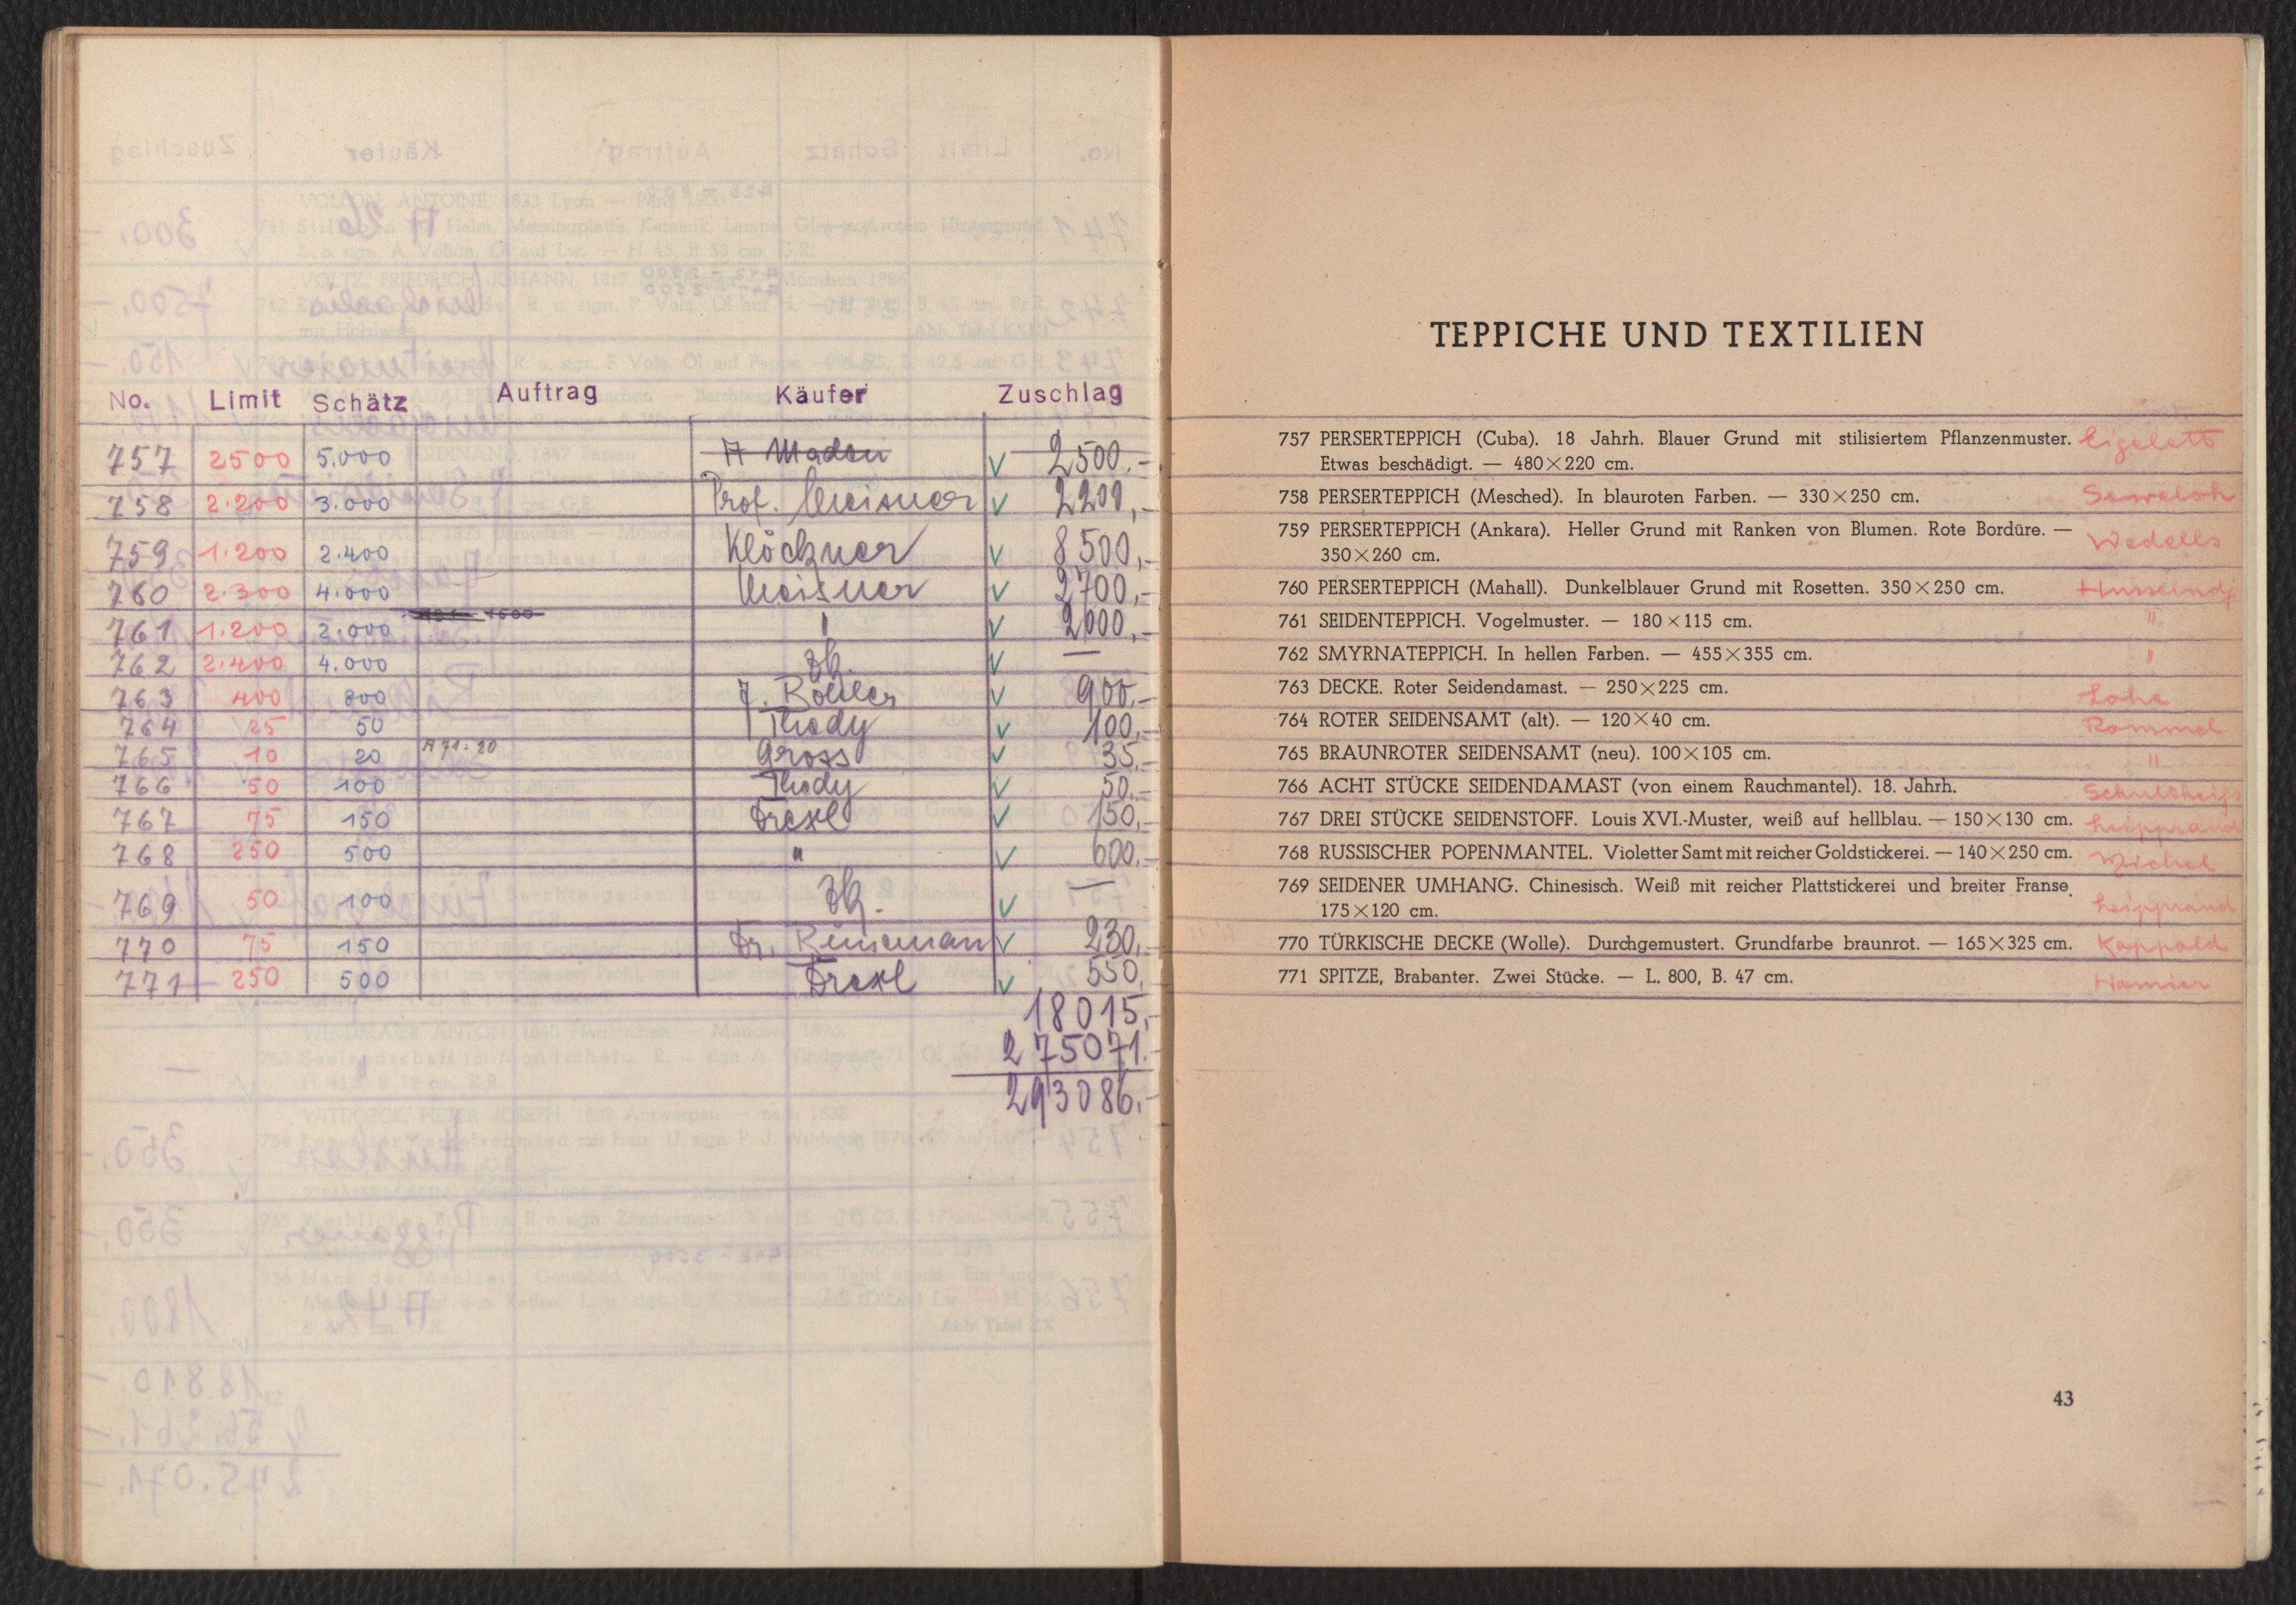 No. Limit Schätz Auftrag Käufer Zuschlag
757 2500 5.000 v 2500.-
758 2.200 3.000 Prof. Meisner v 2200,-
759 1.200 2.400 Klöckner v 8500,-
760 2.300 4.000 Meisner v 2700,-
761 1.200 2.000 " v 2000,-
762 2.400 4.000 v —
763 400 800 v 900.-
764 25 50 Thody v 100,-
765 10 20 A 71: 20 Gross v 35.-
766 50 100 Thody v 50.-
767 75 150 Drexl v 150,-
768 250 500 " v 600,-
769 50 100 v —
770 75 150 Dr. v 230,-
771 250 500 Drexl v 550,
18015,-
275071.-
293086.-
TEPPICHE UND TEXTILIEN
757 PERSERTEPPICH (Cuba). 18 Jahrh. Blauer Grund mit stilisiertem Pflanzenmuster.
Etwas beschädigt. — 480×220 cm.
758 PERSERTEPPICH (Mesched). In blauroten Farben. — 330×250 cm.
759 PERSERTEPPICH (Ankara). Heller Grund mit Ranken von Blumen. Rote Bordüre. —
350×260 cm. Wedells
760 PERSERTEPPICH (Mahall). Dunkelblauer Grund mit Rosetten. 350×250 cm.
761 SEIDENTEPPICH. Vogelmuster. — 180×115 cm. "
762 SMYRNATEPPICH. In hellen Farben. — 455×355 cm. "
763 DECKE. Roter Seidendamast. — 250×225 cm. Lohe
764 ROTER SEIDENSAMT (alt). — 120×40 cm. Rommel
765 BRAUNROTER SEIDENSAMT (neu). 100×105 cm. "
766 ACHT STÜCKE SEIDENDAMAST (von einem Rauchmantel). 18. Jahrh. Schultheiß
767 DREI STÜCKE SEIDENSTOFF. Louis XVI.-Muster, weiß auf hellblau. — 150×130 cm. Leipprand
768 RUSSISCHER POPENMANTEL. Violetter Samt mit reicher Goldstickerei. — 140×250 cm.
769 SEIDENER UMHANG. Chinesisch. Weiß mit reicher Plattstickerei und breiter Franse.
175×120 cm. Leipprand
770 TÜRKISCHE DECKE (Wolle). Durchgemustert. Grundfarbe braunrot. — 165×325 cm. Kappold
771 SPITZE, Brabanter. Zwei Stücke. — L. 800, B. 47 cm. Hamier
43